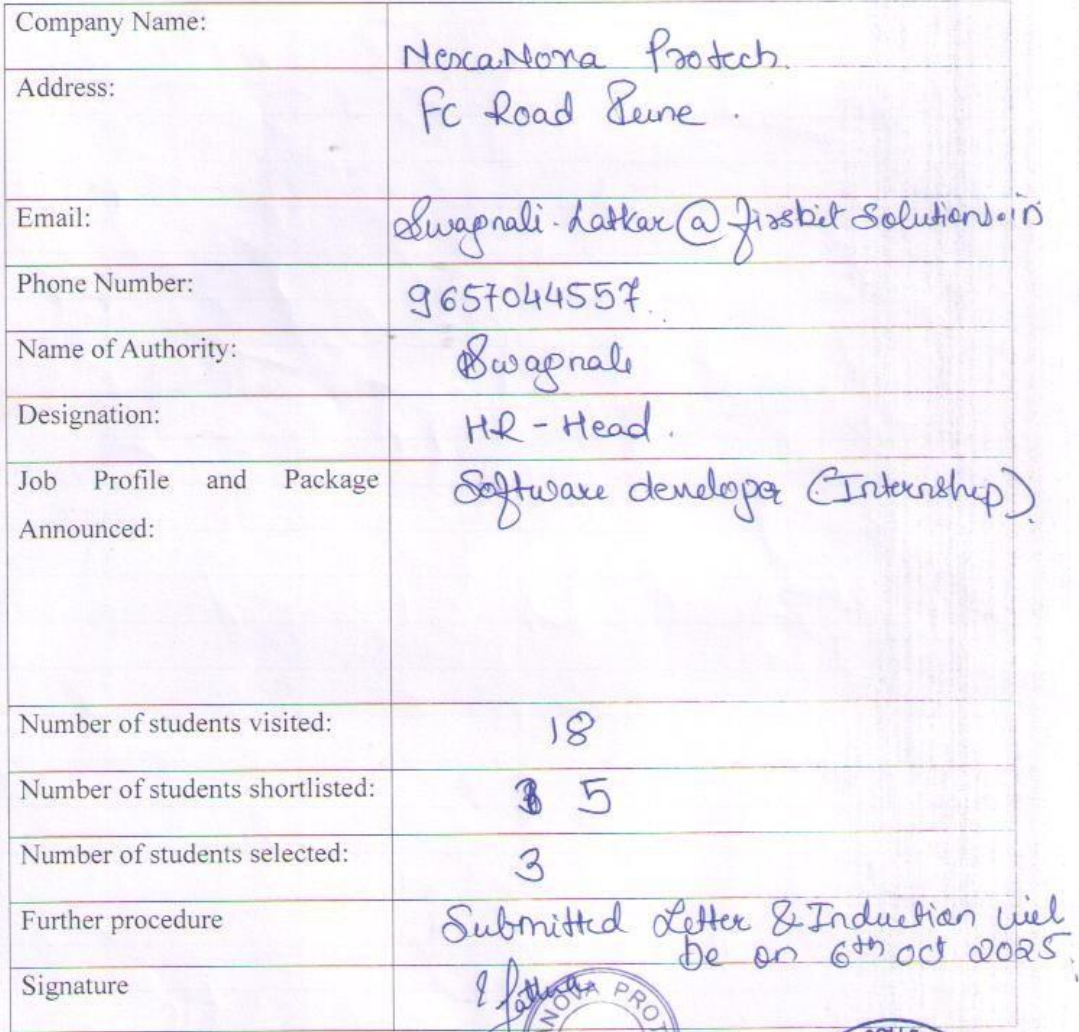 Company Name:
NexaNova Protech.
Address:
Fc Road Pune.
Email:
Swapnali.Latkar@firstbit Solutions.in
Phone Number:
9657044557.
Name of Authority:
Swapnali
Designation:
HR - Head.
Job Profile and Package
Software developer (Internship).
Announced:
Number of students visited:
18
Number of students shortlisted:
5
Number of students selected:
3
Further procedure
Submitted Letter & Induction will
be on 6th oct 2025.
Signature
ANOVA PROT